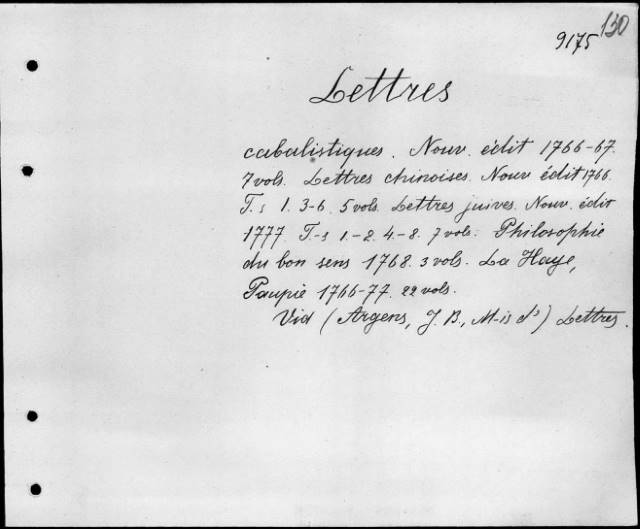 130
9175
Lettres
cabalistiques. Nouv. édit 1766-67.
7 vols. Lettres chinoises. Nouv édit 1766.
T.s 1. 3-6. 5 vols. Lettres juives. Nouv. édit
1777. T.-s 1.-2. 4.-8. 7 vols. Philosophie
du bon sens 1768. 3 vols. La Haye,
Paupie 1766-77. 22 vols.
Vid (Argens, J. B., M-is d') Lettres.